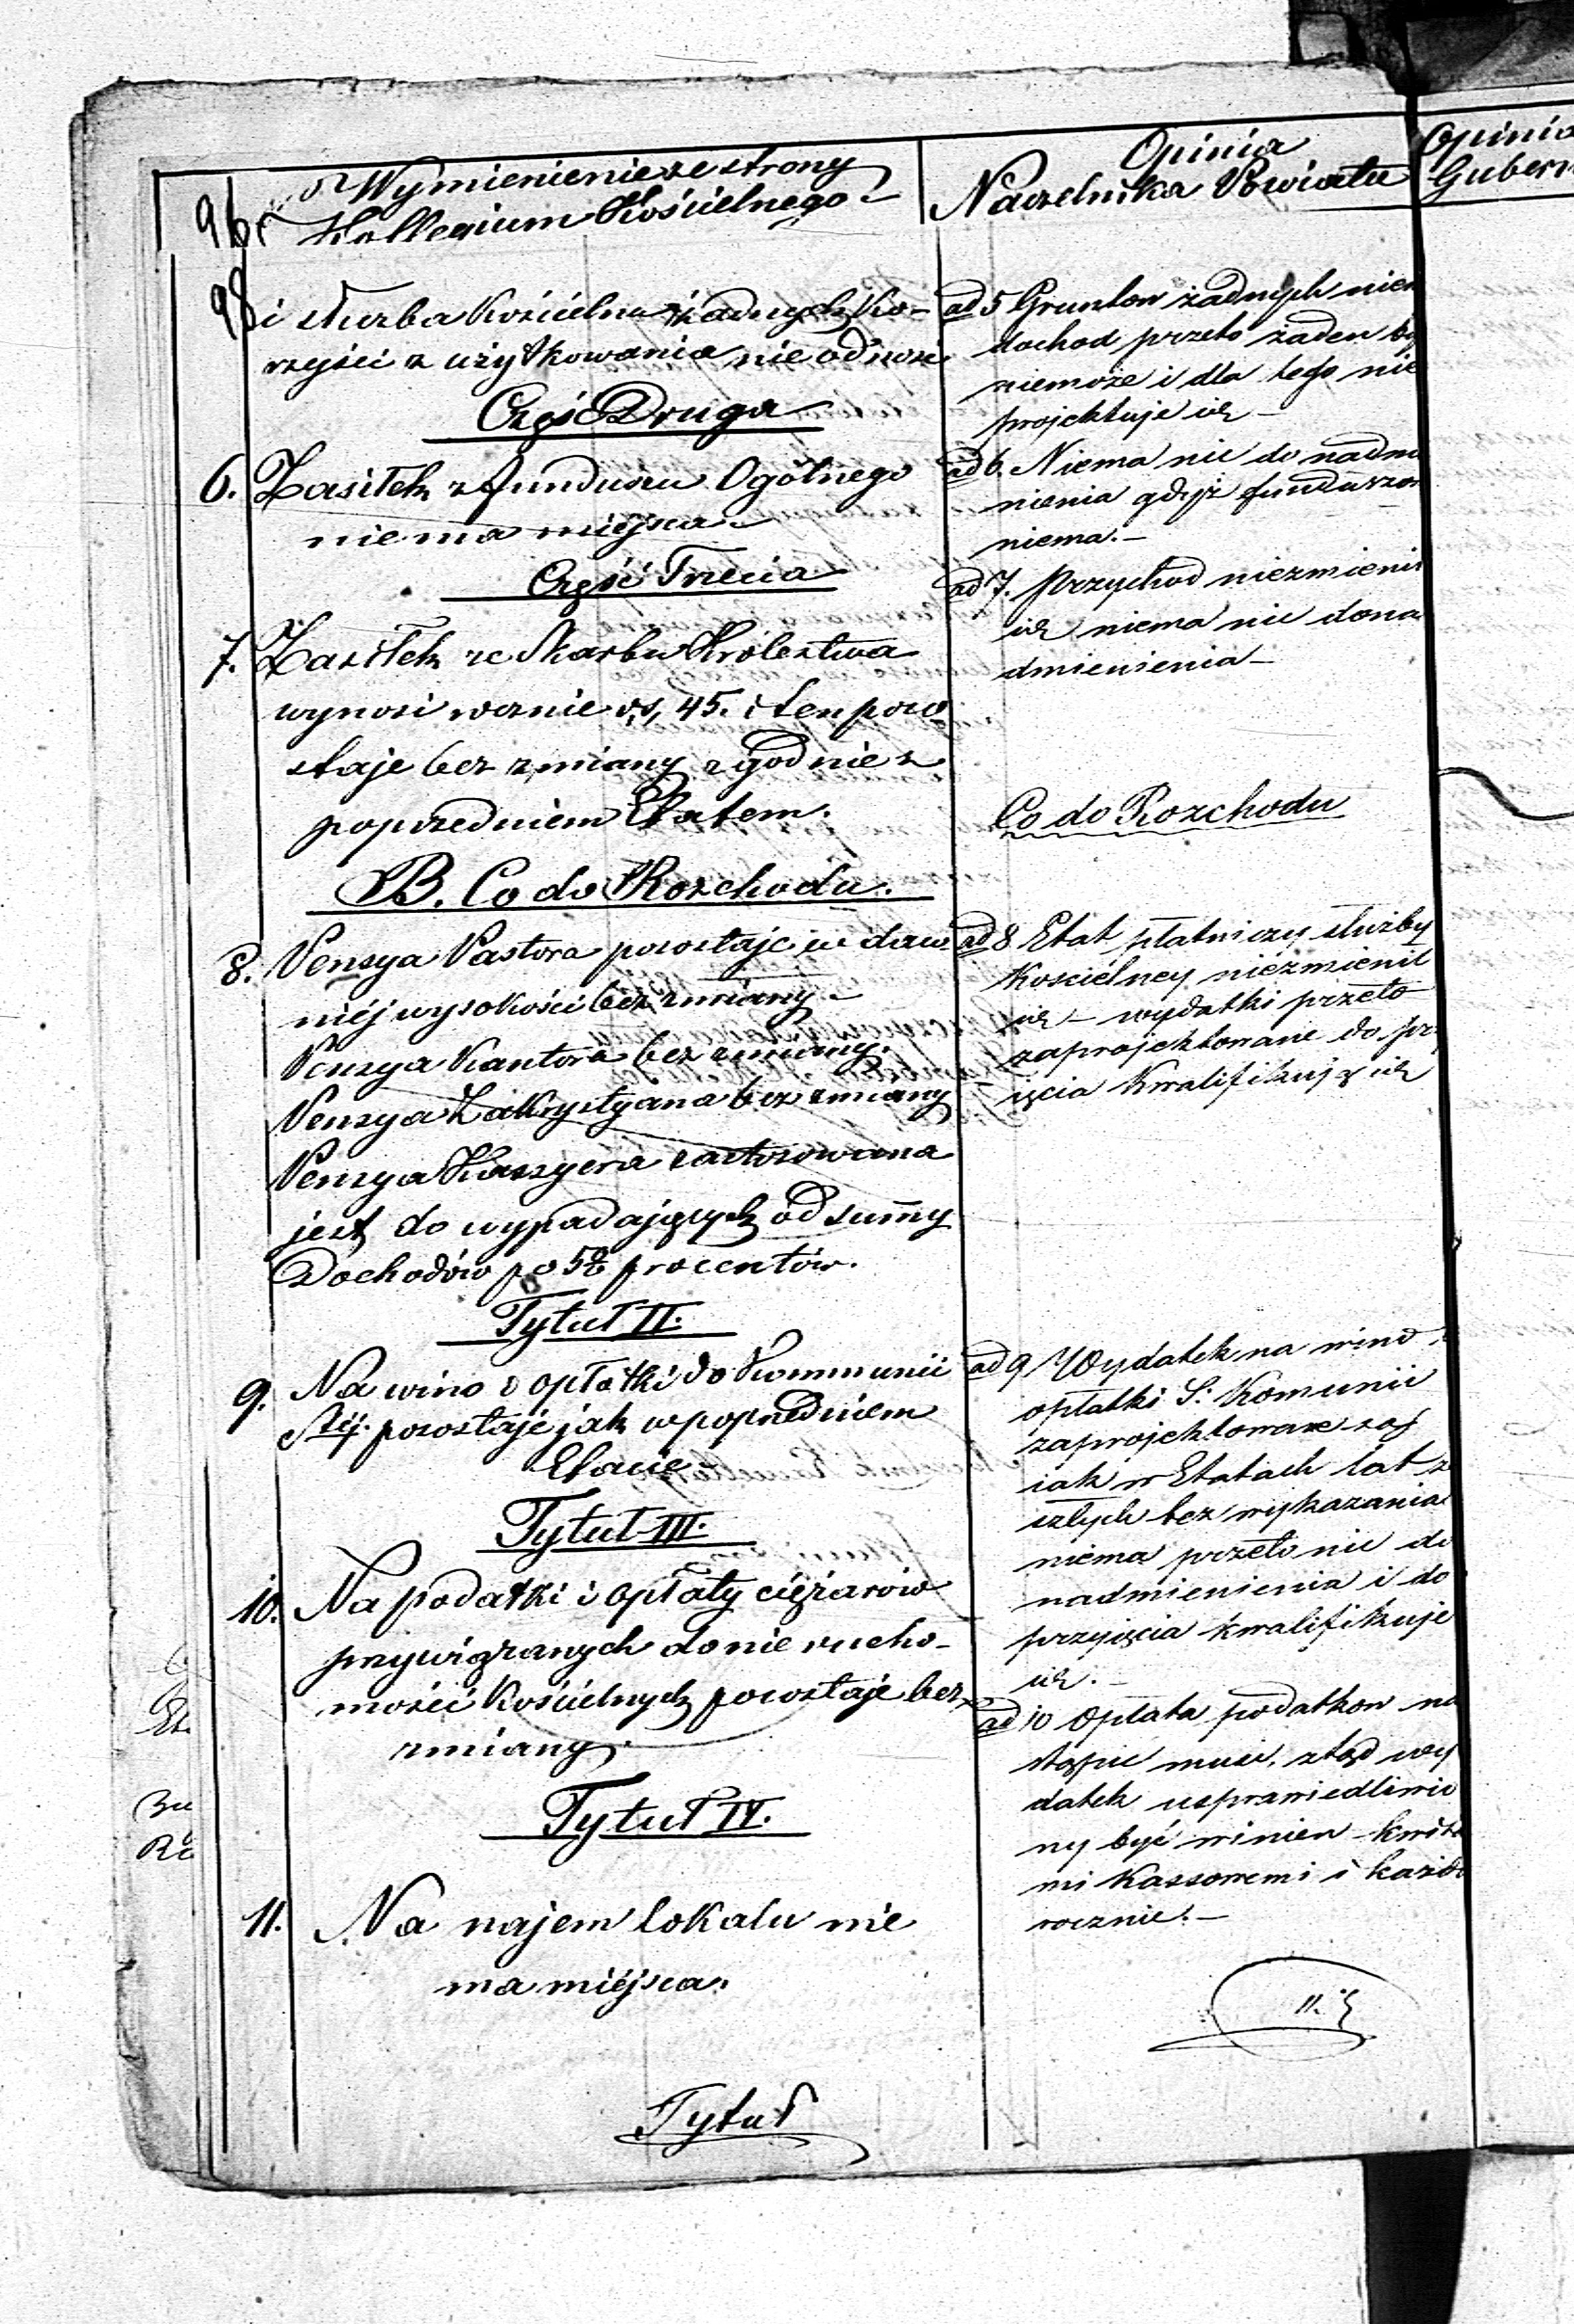 96
98
Wymienienie ze strony
Kollegium Kościelnego
i służba Kościelna żadnych ko-
rzyści z użytkowania nie odnosi
Część Druga
6. Zasiłek z funduszu Ogólnego
nie ma miejsca.
Część Trzecia
7. Zasiłek ze Skarbu Królestwa
wynosi rocznie rs, 45. i ten pozo
staje bez zmiany zgodnie z
poprzedniem Etatem.
B. Co do Rozchodu.
8. Pensya Pastora pozostaje w daw
niéj wysokości bez zmiany
Pensya Kantora bez zmiany.
Pensya Zakrystyana bez zmiany
Pensya Kassyera zastosowana
jest do wypadających od summy
Dochodów po 5% procentów.
Tytuł II.
9. Na wino i opłatki do Kommunii
Stej. pozostaje jak w poprzedniem
Etacie
Tytuł III.
10. Na podatki i opłaty ciężarów
przywiązanych do nierucho-
mości Kościelnych pozostaje bez
zmiany.
Tytuł IV.
11. Na najem lokalu nie
ma miejsca.
Tytuł
Opinia
Naczelnika Powiatu
ad 5 Gruntow żadnych niem
dochod przeto żaden by
niemoże i dla tego nie
projektuje się —
ad 6. Niema nic do nadmi
nienia gdyż funduszow
niema. —
ad 7. Przychod niezmienił
się niema nic dona
dmienienia —
Co do Rozchodu
ad 8 Etat płatniczy służby
Koscielney niezmienił
się — wydatki przeto
zaprojektowane do prz
ięcia Kwalifikują się
ad 9 Wydatek na wino i
opłatki S: Komunii
zaprojektowane są
iak w Etatach lat ze
szłych bez wykazania
niema przeto nic do
nadmienienia i do
przyięcia kwalifikuje
się. —
ad 10 Opłata podatkow na
stąpić musi, ztąd wy
datek usprawiedliwio
ny być winien kwita
mi Kassowemi i każdo
rocznie. —
11.
Opinia
Gubern